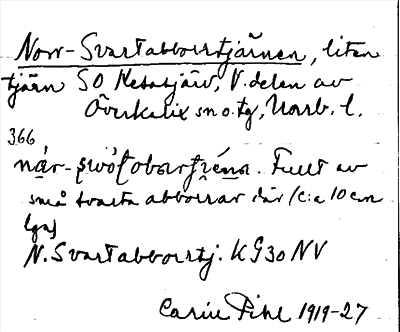 Norr-Svartabborrtjärnen, liten
tjärn SO Keta​sjärv, V. delen av
Överkalix sn o. tg, Norrb. l.
366
små svarta abborrar där (c:a 10 cm
lga)
N. Svartabborrtj. KG30 NV
Carin Pihl 1919-27